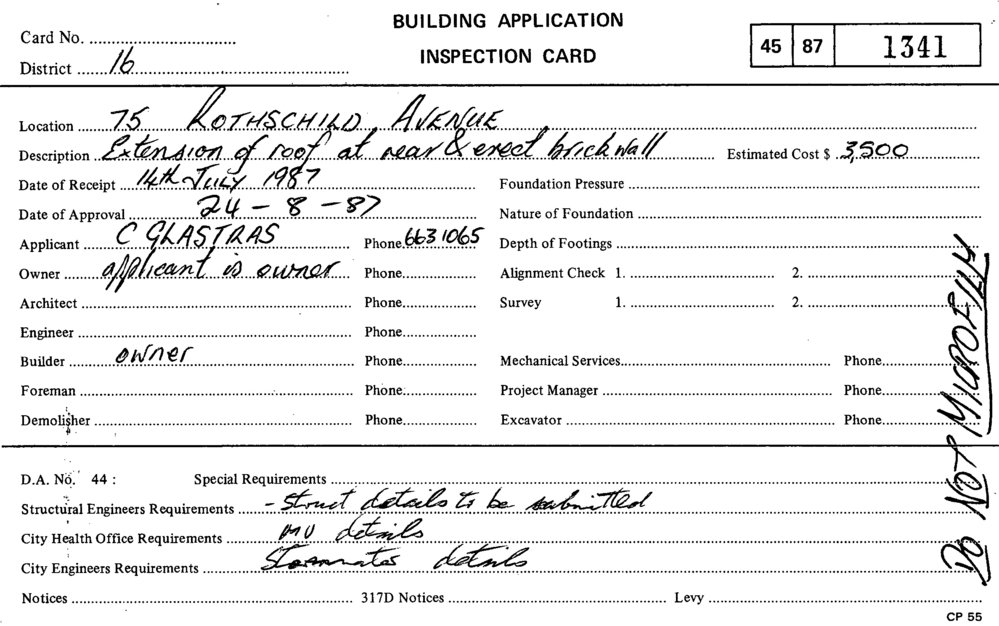 BUILDING APPLICATION
INSPECTION CARD
Card No.
District 16
45 87 1341
Location 75 ROTHSCHILD AVENUE
Description Extension of roof at rear & erect brick wall Estimated Cost $ 3,500
Date of Receipt 14th JULY 1987 Foundation Pressure
Date of Approval 24-8-87 Nature of Foundation
Applicant C GLASTRAS Phone 663 1065 Depth of Footings
Owner applicant is owner Phone Alignment Check 1. 2.
Architect Phone Survey 1. 2.
Engineer Phone
Builder owner Phone Mechanical Services Phone
Foreman Phone Project Manager Phone
Demolisher Phone Excavator Phone
DO NOT MICROFILM
D.A. No. 44 : Special Requirements
Structural Engineers Requirements - Struct details to be submitted
City Health Office Requirements details
City Engineers Requirements details
Notices 317D Notices Levy
CP 55